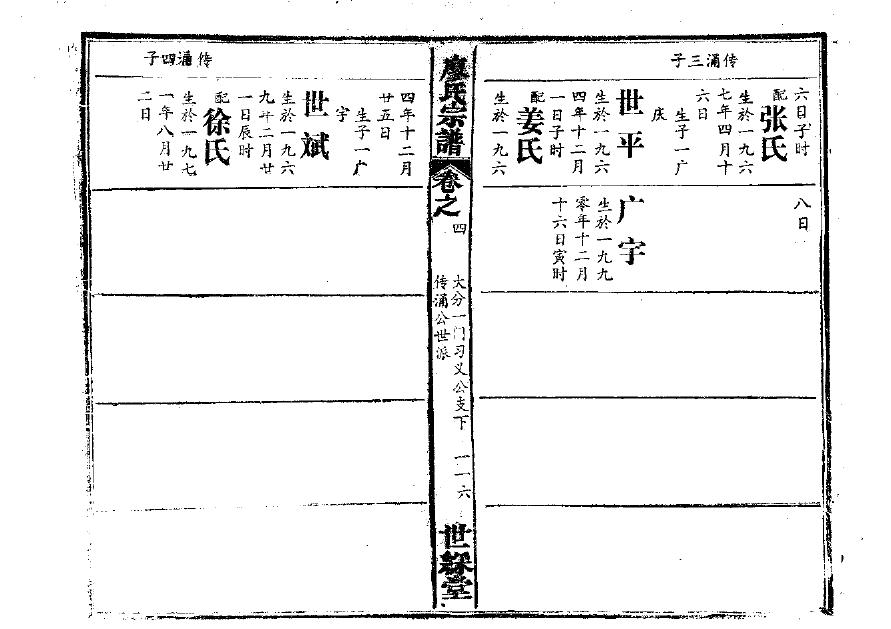 传涌三子
六日子时
配张氏
生於一九六
七年四月十
六日
生子一广
庆
世平
生於一九六
四年十二月
一日子时
配姜氏
生於一九六
八日
广宇
生於一九九
零年十二月
十六日寅时
廖氏宗譜
卷之四
大分一门习义公支下
传涌公世派
一一六
世綵堂
传涌四子
四年十二月
廿五日
生子一广
宇
世斌
生於一九六
九年二月廿
一日辰时
配徐氏
生於一九七
一年八月廿
二日